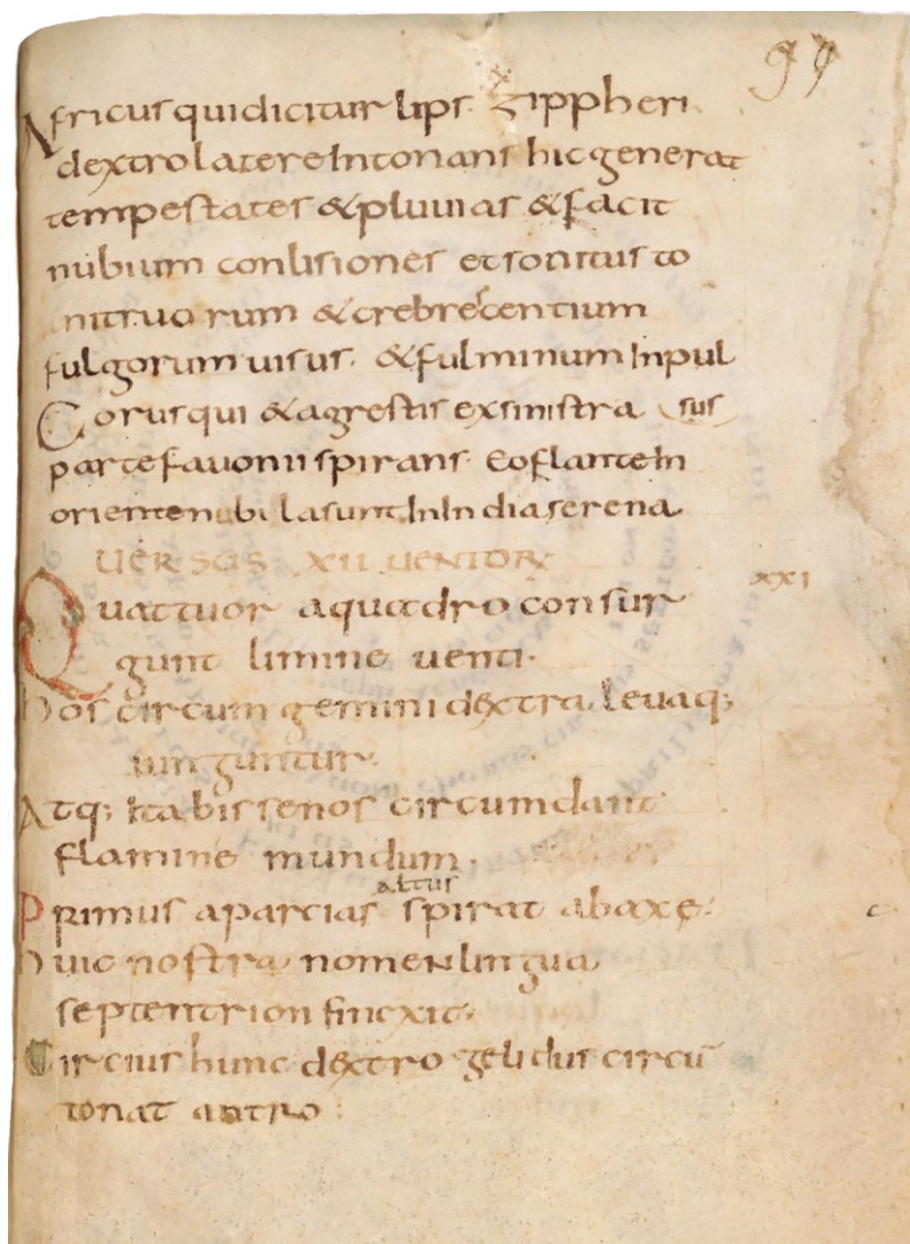 99
Africus qui dicitur lips. zippheri
dextro latere Intonans hic generat
tempestates & pluuias & facit
nubium conlisiones et sonitus to
nitruo rum & crebrescentium
fulgorum uisus. & fulminum Inpul
Corus qui & agrestis ex sinistra sus
parte fauonii spirans. Eo flante In
oriente nubila sunt. In India serena
UERSUS XII UENTOR
xxi
Quattuor a quadro consur
gunt limine uenti.
hos circum gemini dextra leuaq;
iunguntur.
Atq; Ita bis senos circumdant
flamine mundum.
altus
Primus aparcias spirat ab axe.
huic nostra nomen lingua
septentrion finxit.
Circius hunc dextro gelidus circū
tonat antro